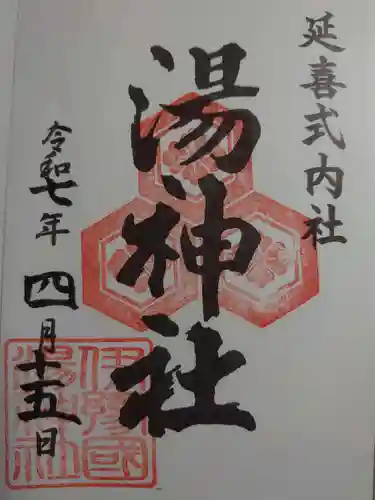 延喜式内社
湯神社
令和七年
四月十五日
伊豫國
湯神社